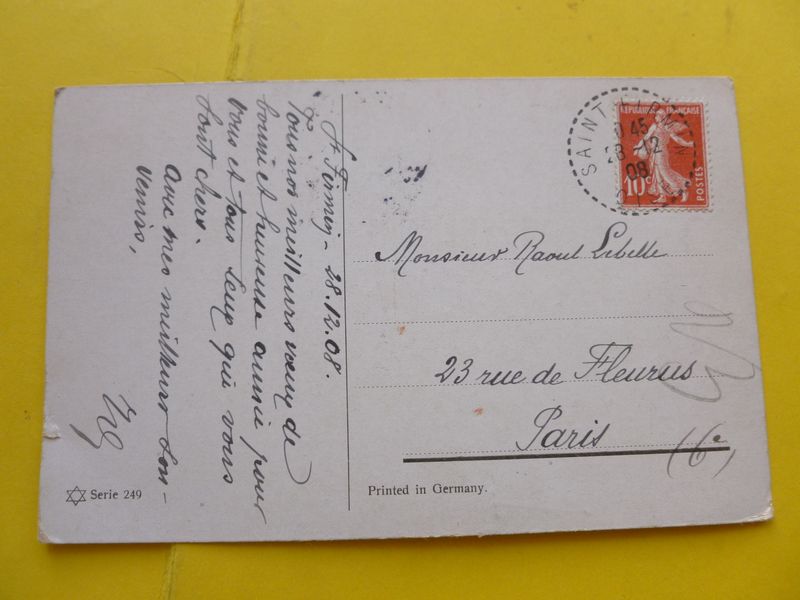 St Firmin - 28.12.08.
Tous nos meilleurs vœux de
bonne et heureuse année pour
vous et tous ceux qui vous
sont chers.
Avec mes meilleurs sou-
venirs,
REPUBLIQUE FRANÇAISE
10c
POSTES
SAINT
45
28 -12
08
Monsieur Raoul Lebelle
23 rue de Fleurus
Paris
(6e)
Serie 249
Printed in Germany.